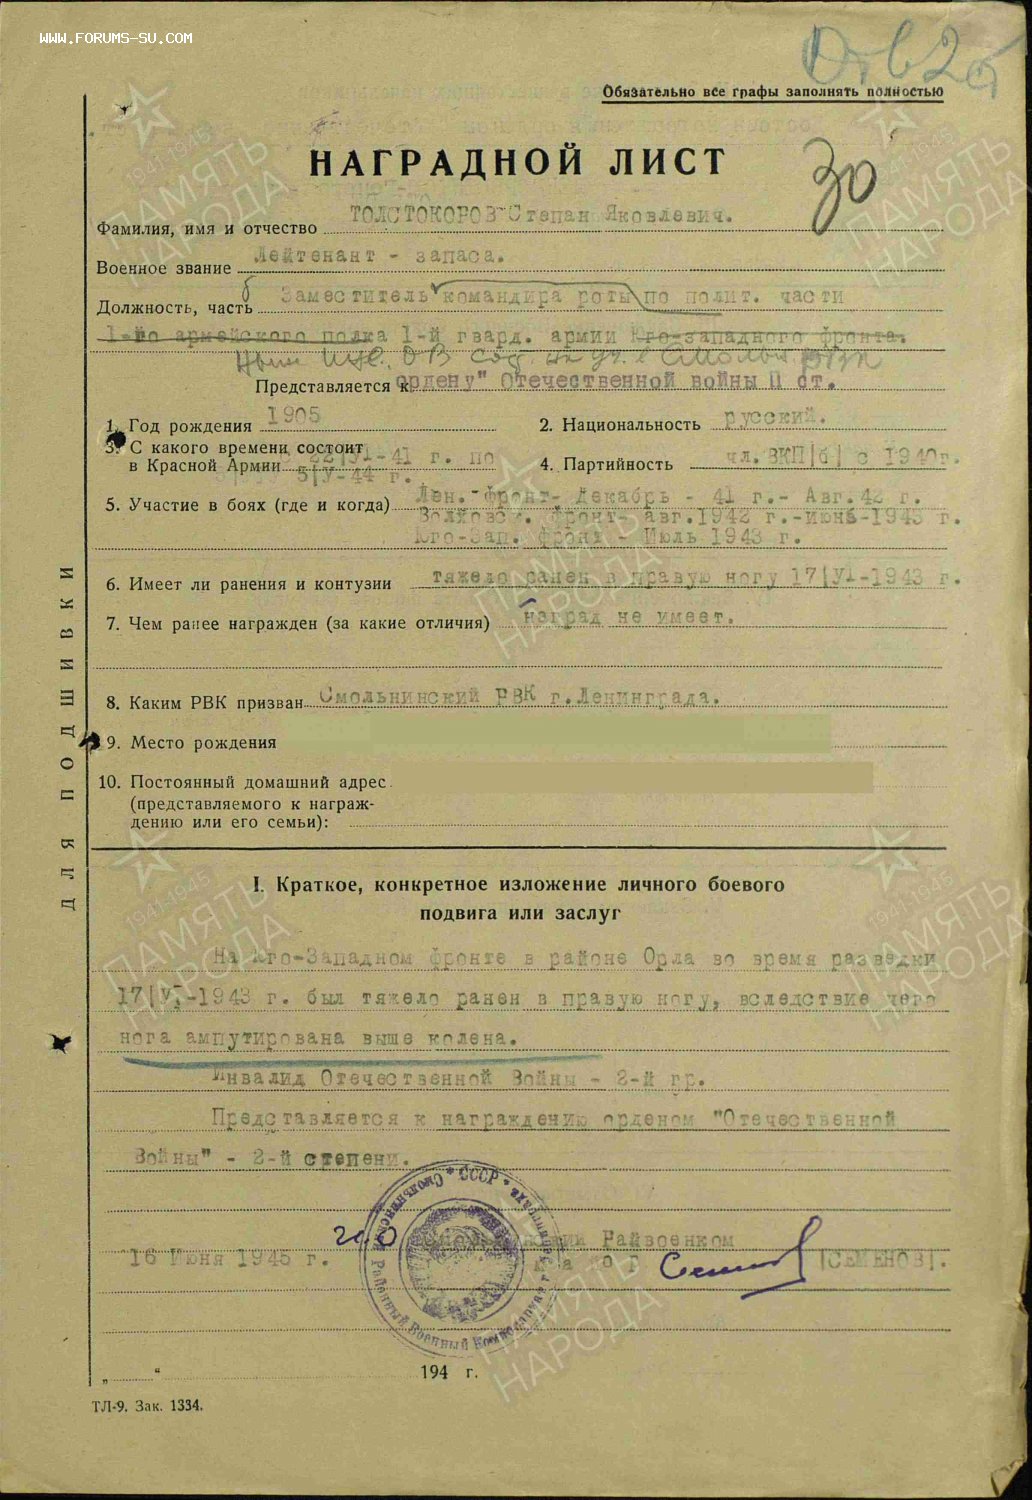 WWW.FORUMS-SU.COM
Обязательно все графы заполнять полностью
30
НАГРАДНОЙ ЛИСТ
Фамилия, имя и отчество ТОЛСТОКОРОВ Степан Яковлевич.
Военное звание Лейтенант - запаса.
Должность, часть б Заместитель командира роты по полит. части
1-го армейского полка 1-й гвард. армии Юго-западного фронта.
Представляется к ордену" Отечественной войны II ст.
1. Год рождения 1905
2. Национальность русский.
3. С какого времени состоит
в Красной Армии с 22|VI-41 г. по
5|V-44 г.
4. Партийность чл. ВКП|б| с 1940г.
5. Участие в боях (где и когда) Лен.-Фронт- Декабрь - 41 г.- Авг.42 г.
Волховск. фронт- авг.1942 г.-июнь-1943 г.
Юго-Зап. фронт - Июль 1943 г.
6. Имеет ли ранения и контузии тяжело ранен в правую ногу 17|VI-1943 г.
7. Чем ранее награжден (за какие отличия) наград не имеет.
8. Каким РВК призван Смольнинский РВК г.Ленинграда.
9. Место рождения
10. Постоянный домашний адрес
(представляемого к награж-
дению или его семьи):
I. Краткое, конкретное изложение личного боевого
подвига или заслуг
На Юго-Западном фронте в районе Орла во время разведки
17|VI-1943 г. был тяжело ранен в правую ногу, вследствие чего
нога ампутирована выше колена.
Инвалид Отечественной Войны - 2-й гр.
Представляется к награждению орденом "Отечественной
Войны" - 2-й степени.
Смольнинский Райвоенком
16 Июня 1945 г.
|СЕМЕНОВ|.
СССР
Районный Военный Комиссариат
„ “ 194 г.
ТЛ-9. Зак. 1334.
ДЛЯ ПОДШИВКИ
1941-1945
ПАМЯТЬ
НАРОДА